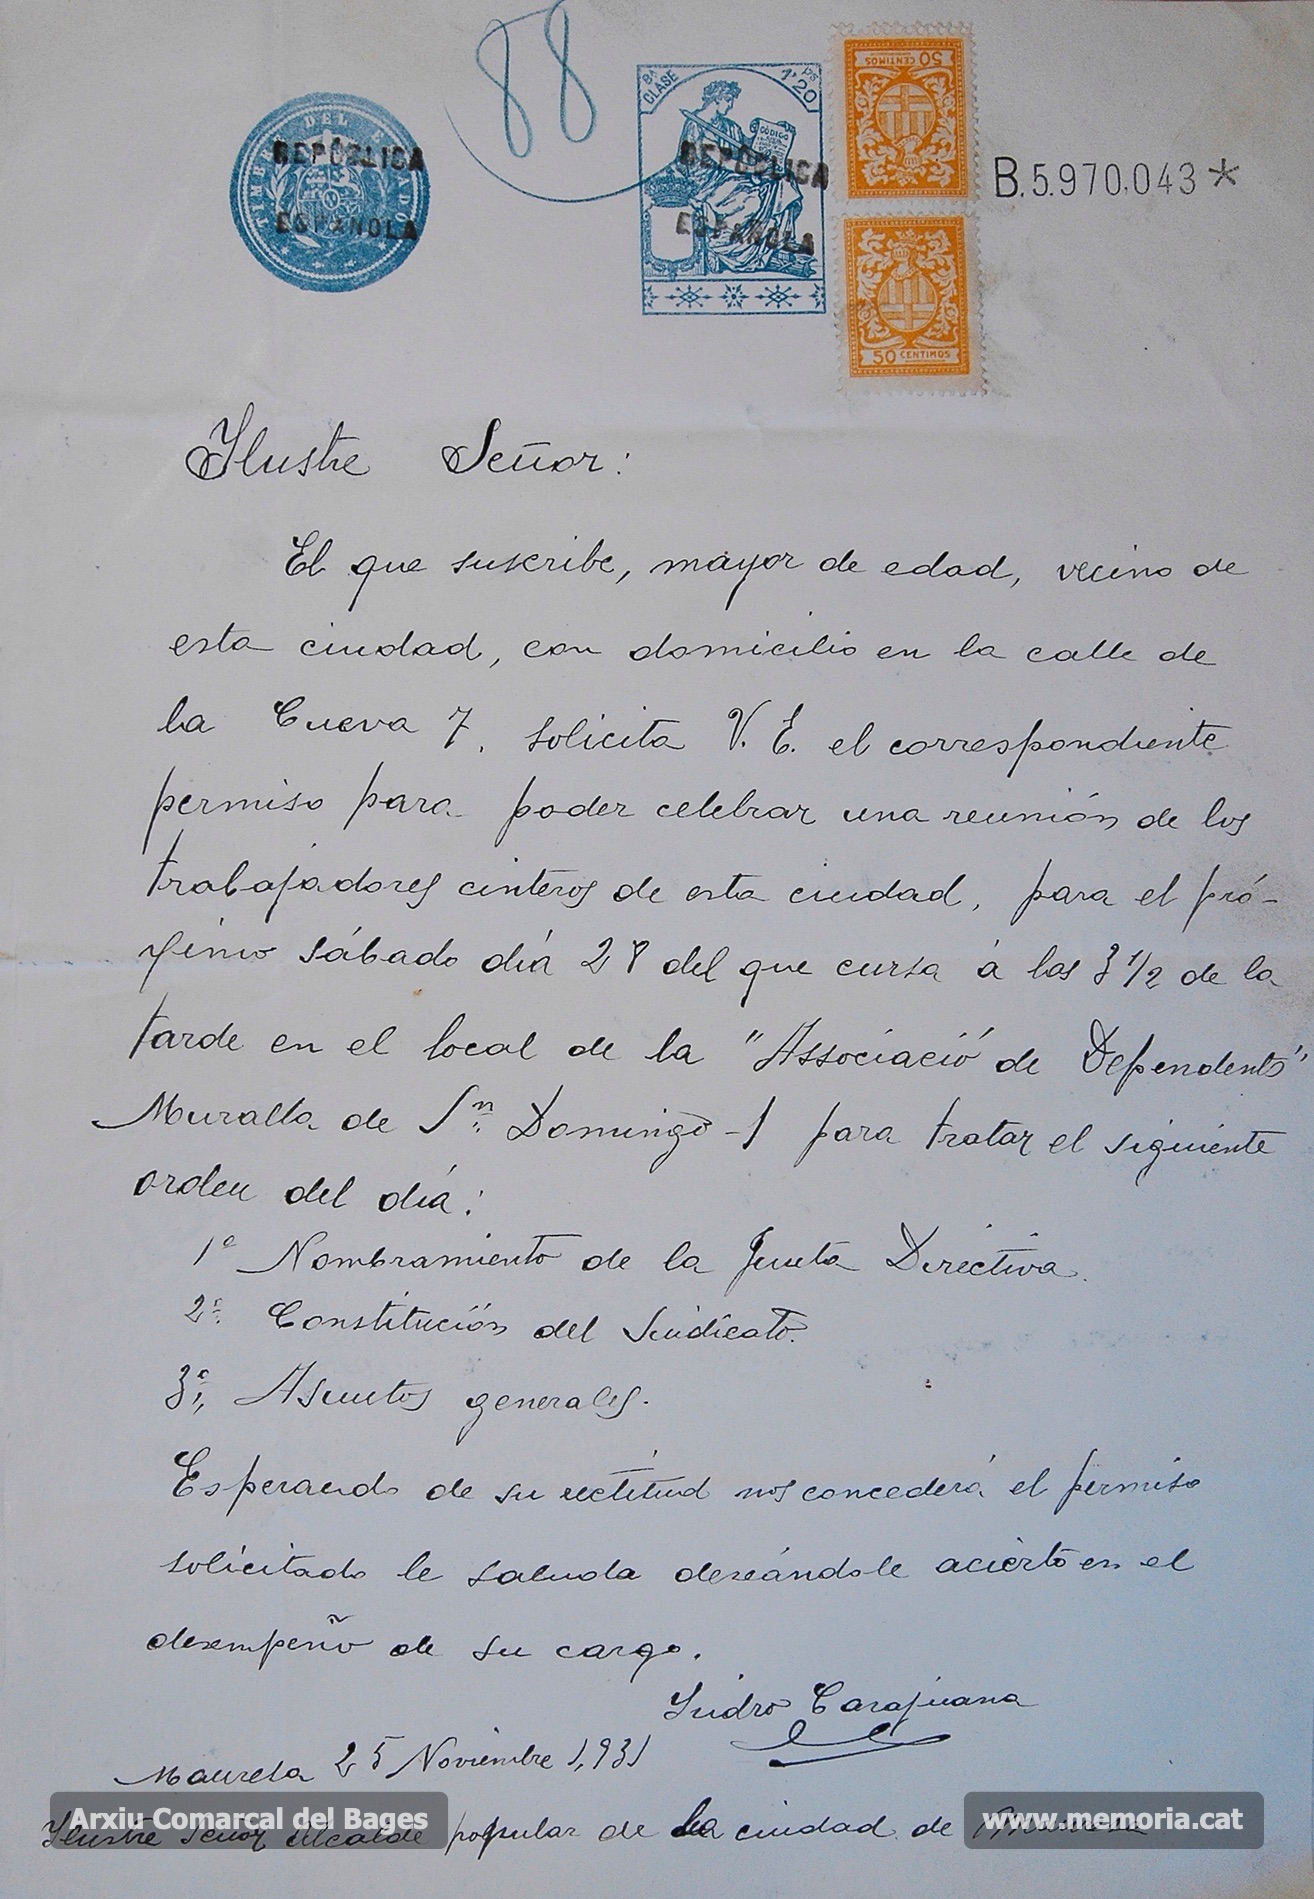 88
TIMBRE DEL ESTADO
REPÚBLICA
ESPAÑOLA
8ª CLASE
1'20 ps
CÓDIGO
REPÚBLICA
ESPAÑOLA
50 CENTIMOS
50 CENTIMOS
B.5.970.043*
Ilustre Señor:
El que suscribe, mayor de edad, vecino de
esta ciudad, con domicilio en la calle de
la Cueva 7, solicita V. E. el correspondiente
permiso para poder celebrar una reunión de los
trabajadores cinteros de esta ciudad, para el pró-
ximo sábado día 28 del que cursa á las 3 1/2 de la
tarde en el local de la "Associació de Dependents",
Muralla de Sn. Domingo - 1 para tratar el siguiente
orden del día:
1º Nombramiento de la Junta Directiva.
2º. Constitución del Sindicato.
3º, Asuntos generales.
Esperando de su rectitud nos concederá el permiso
solicitado le saluda deseándole acierto en el
desempeño de su cargo.
Isidro Carajuana
Manresa 25 Noviembre 1,931
Ilustre Señor Alcalde popular de la ciudad de Manresa
Arxiu Comarcal del Bages
www.memoria.cat